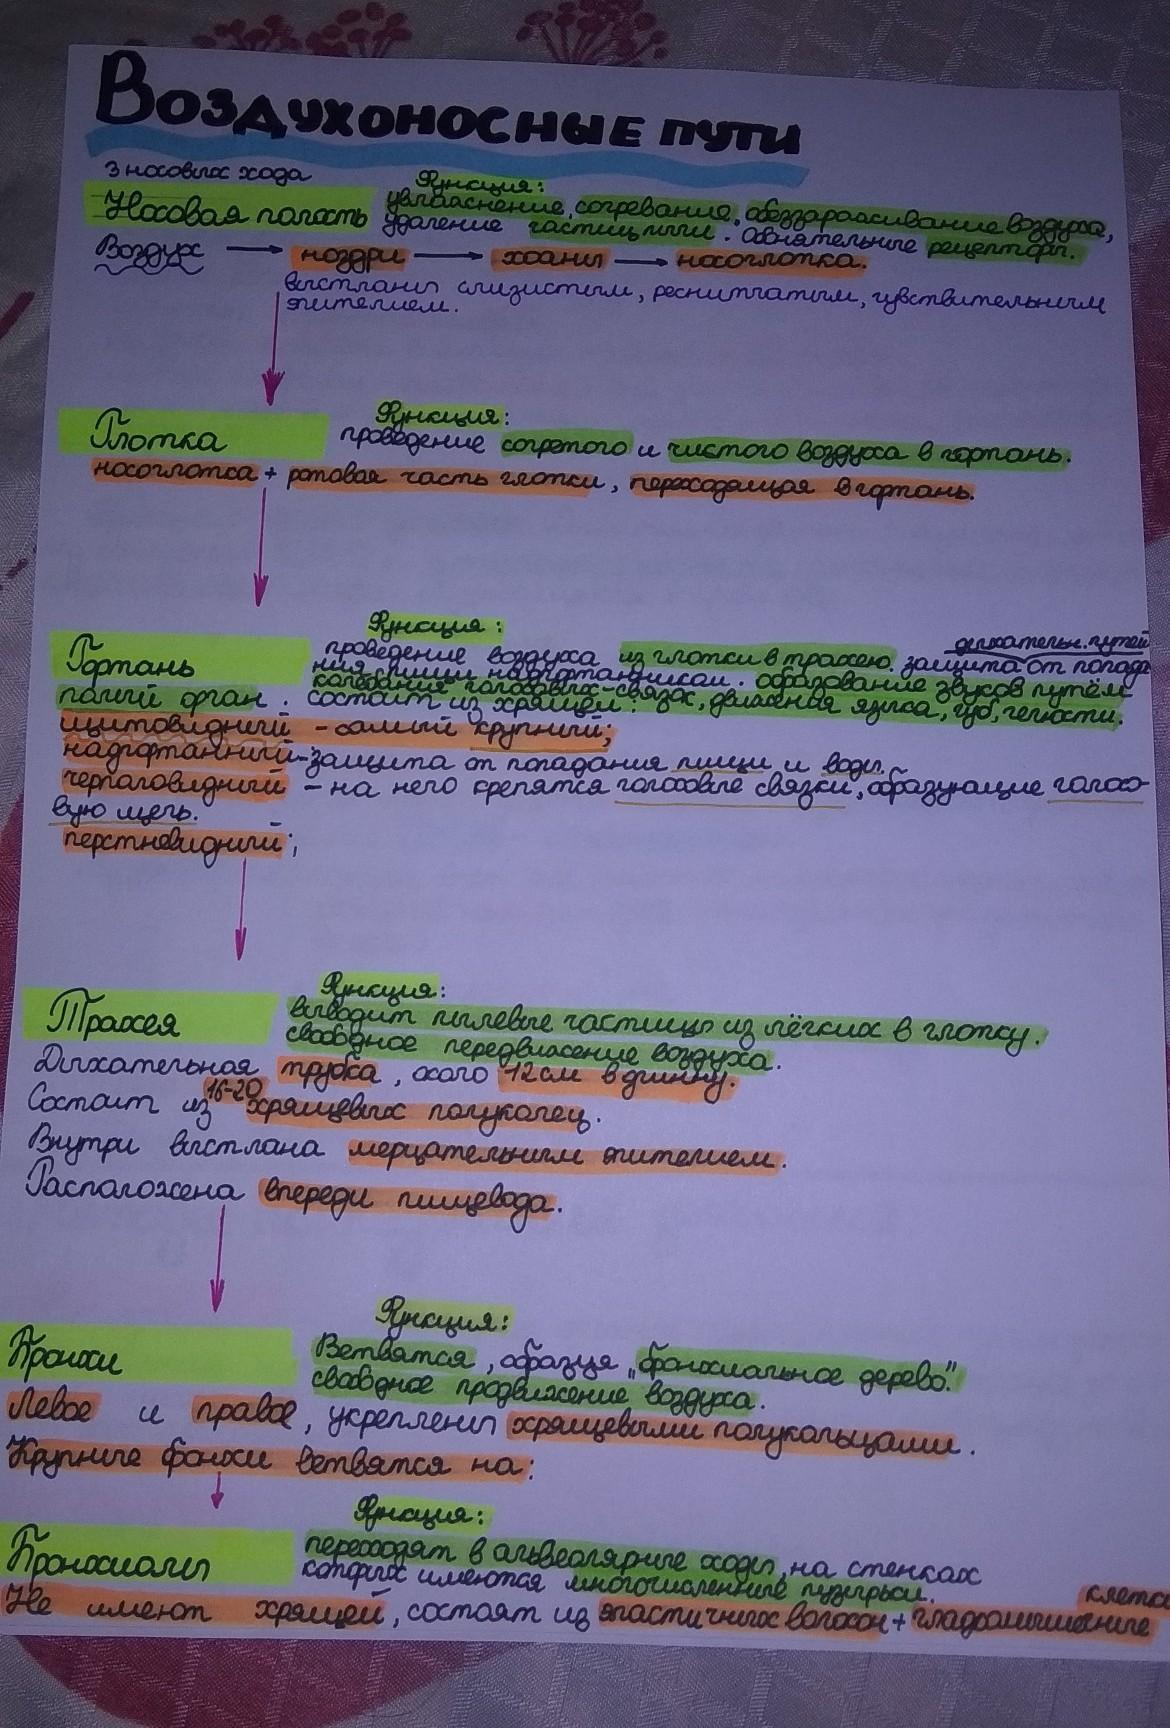 Воздухоносные пути
3 носовых хода
Функция:
Носовая полость
увлажнение, согревание, обеззараживание воздуха,
удаление частиц пыли. Обонятельные рецепторы.
Воздух → ноздри → хоаны → носоглотка.
выстланы слизистым, реснитчатым, чувствительным
эпителием.
Функция:
Глотка
проведение согретого и чистого воздуха в гортань.
носоглотка + ротовая часть глотки, переходящая в гортань.
Функция:
Гортань
дыхательн. путей
проведение воздуха из глотки в трахею. защита от попада
ния пищи надгортанником. образование звуков путём
колебание голосовых связок, движения языка, губ, челюсти.
полый орган. состоит из хрящей:
щитовидный - самый крупный;
надгортанный - защита от попадания пищи и воды.
черпаловидный - на него крепятся голосовые связки, образующие голосо-
вую щель.
перстневидный;
Функция:
Трахея
выводит пылевые частицы из лёгких в глотку.
свободное передвижение воздуха.
Дыхательная трубка, около 12 см в длинну.
Состоит из 16-20 хрящевых полуколец.
Внутри выстлана мерцательным эпителием.
Расположена впереди пищевода.
Функция:
Бронхи
Ветвятся, образуя „бронхиальное дерево".
свободное продвижение воздуха.
Левое и правое, укреплены хрящевыми полукольцами.
Крупные бронхи ветвятся на:
Функция:
Бронхиолы
переходят в альвеолярные ходы, на стенках
которых имеются многочисленные пузырьки.
Не имеют хрящей, состоят из эластичных волокон + гладкомышечные
клетки